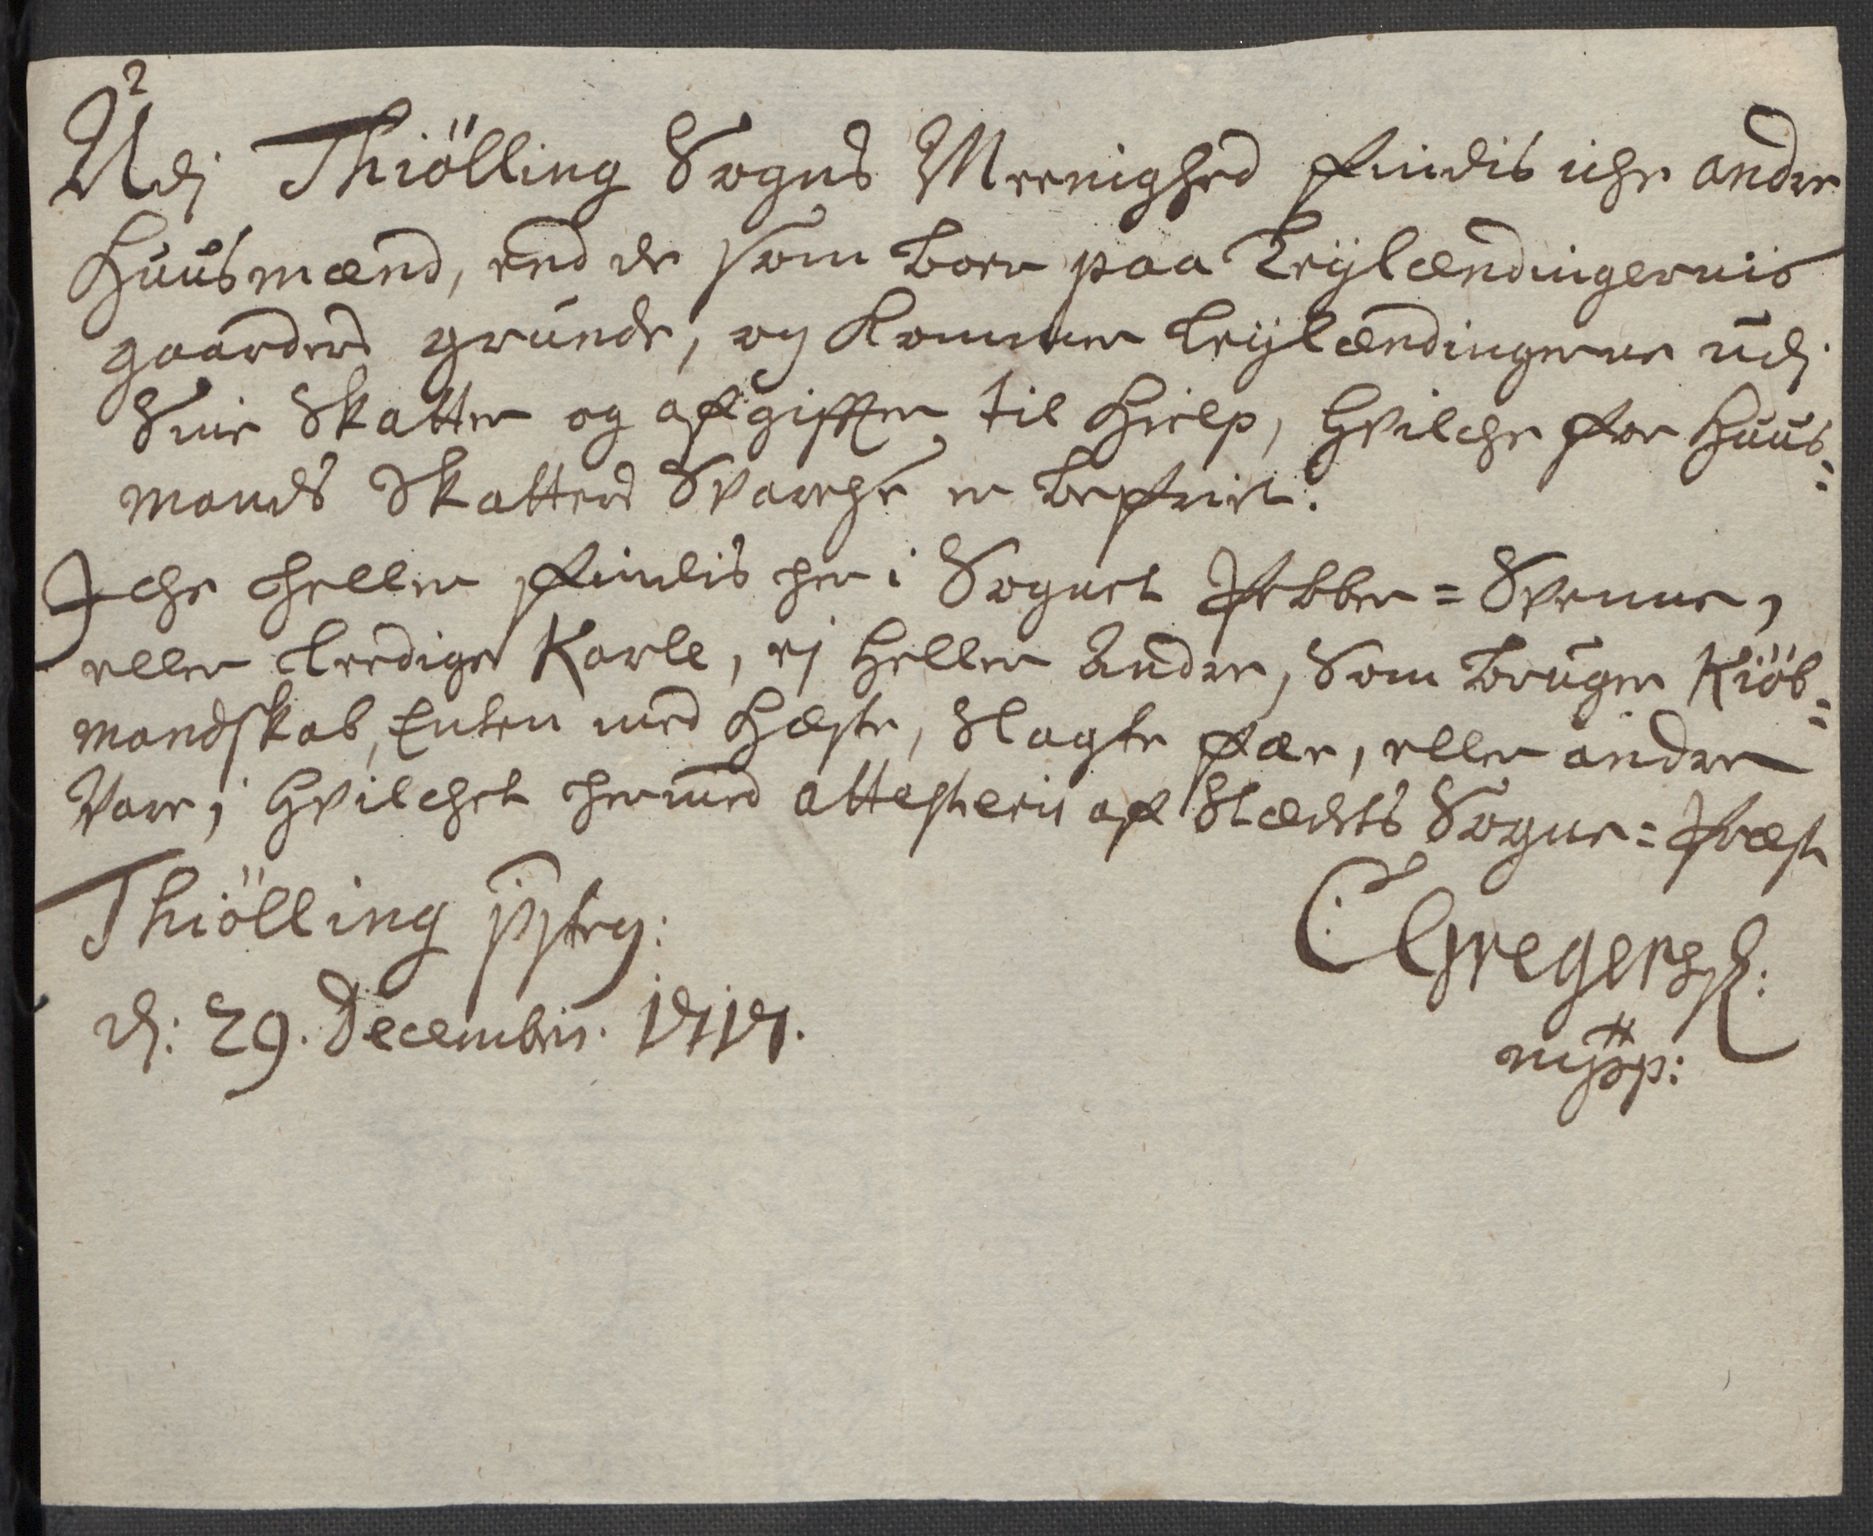 Udj Thiölling Sogns Meenighed findis iche andre
Huusmænd, end de som boer paa Leylændingernis
gaarders grunde, og kommer leylændingerne udj
Sine Skatter og afgiffter til Hielp, Hvilche for Huus=
mands Skatters Svarche er befriet.
Iche heller findis her i Sognet Pebber=Svenne,
eller Leedige Karle, ej heller Andre, Som bruger Kiöb=
mandskab, Enten med Hæste, Slagte fæe, eller andre
Vare, Hvilchet hermed attesteris af Stædets Sogne=Præst
Thiölling
d: 29. Decembris. 1717.
C Gregerss:
mpp:
2